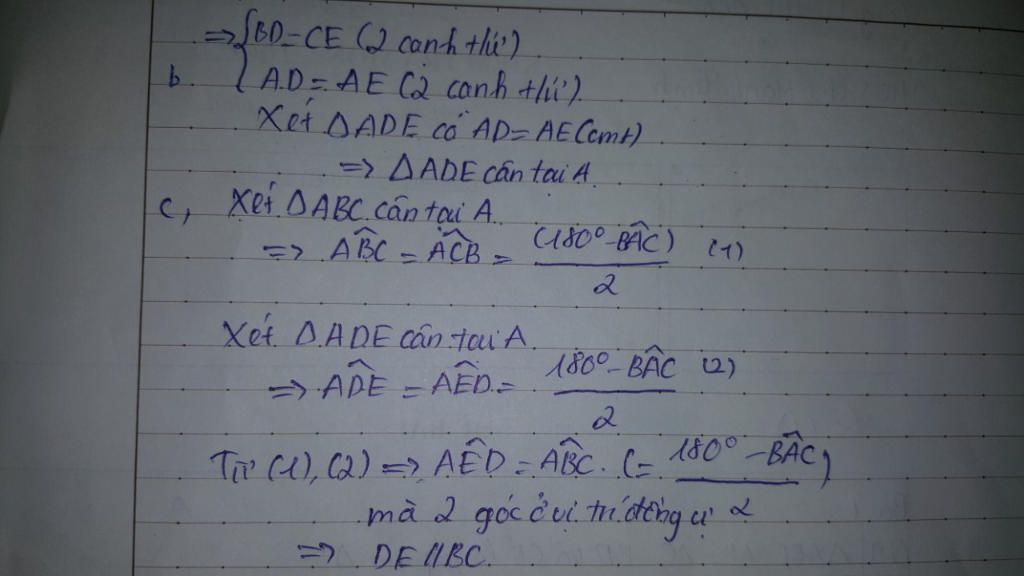 ⇒ { BD = CE (2 cạnh t/ứ)
b. { AD = AE (2 cạnh t/ứ).
Xét ΔADE có AD = AE (cmt)
⇒ ΔADE cân tại A.
c, Xét ΔABC cân tại A.
⇒ ABC^ = ACB^ = (180° - BAC^) / 2 (1)
Xét ΔADE cân tại A.
⇒ ADE^ = AED^ = 180° - BAC^ / 2 (2)
Từ (1), (2) ⇒ AED^ = ABC^. (= 180° - BAC^ / 2)
mà 2 góc ở vị trí đồng vị
⇒ DE // BC.